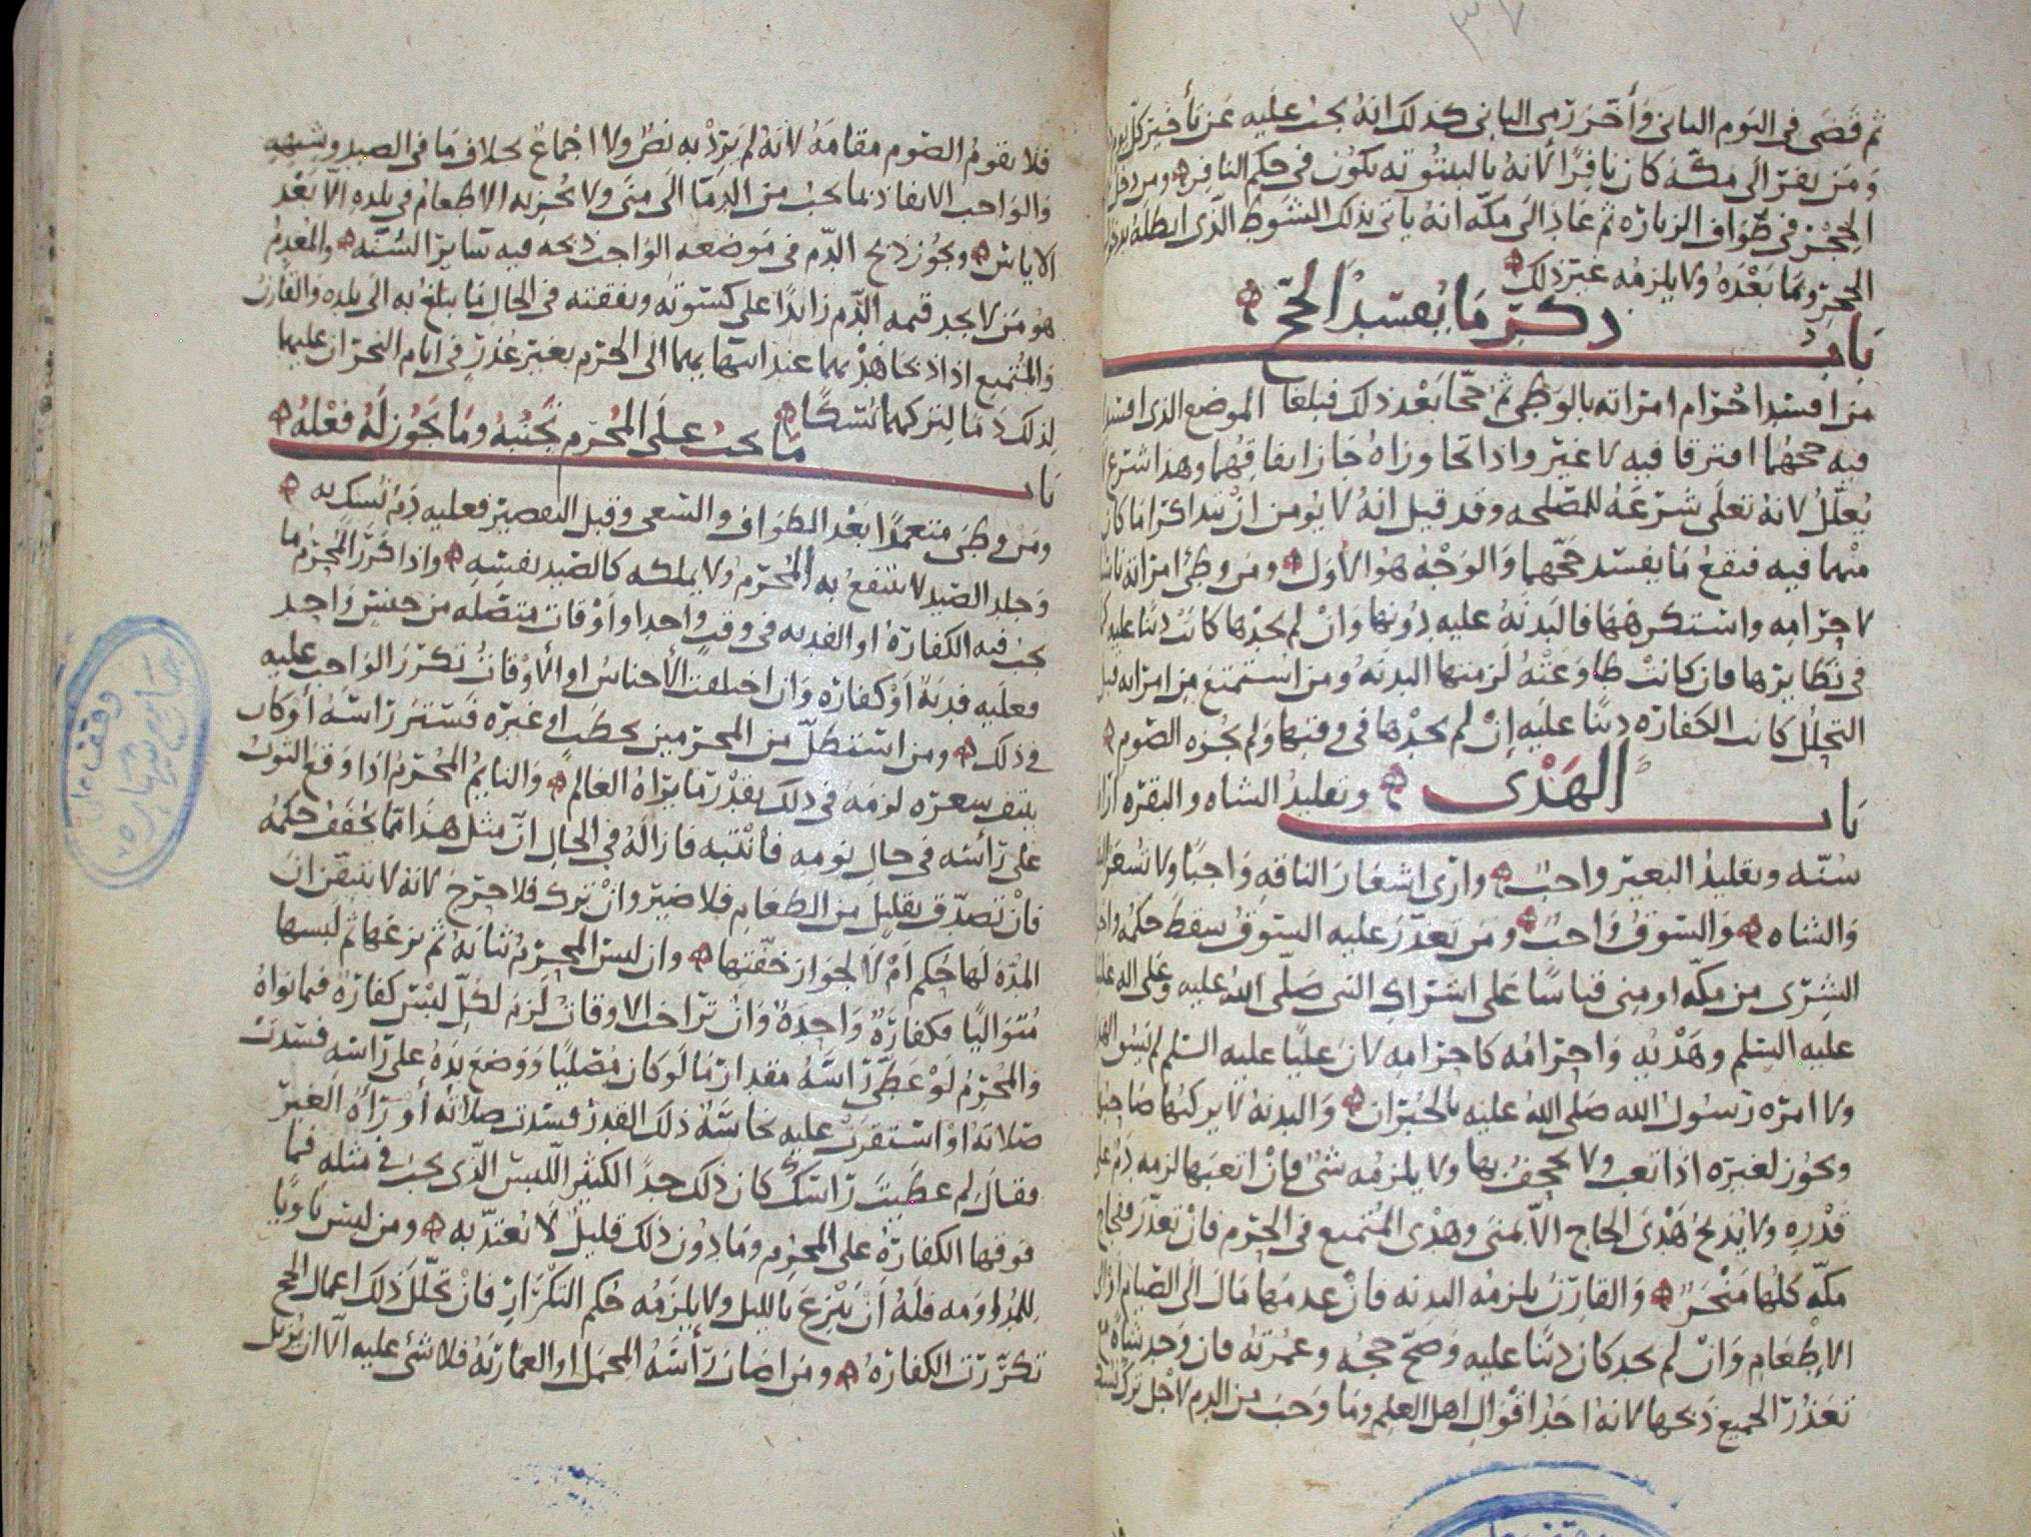 ثم قضى في اليوم الثاني وأخر رمي الثاني كذلك انه يجب عليه عن تأخير كل
ومن نفر الى مكة كان نافرًا لانه بالبيتوتة يكون في حكم النافر ومن دخل
الحجر في طواف الزيارة ثم عاد الى مكة انه يأتي بذلك الشوط الذي ابطله بدخول
الحجر وما بعده ولا يلزمه غير ذلك
باب ذكر ما يفسد الحج
من افسد احرام امراته بالوطي ثم حجا بعد ذلك فبلغا الموضع الذي افسد
فيه حجهما افترقا فيه لا غير واذا تجاوزاه جاز اتفاقهما وهذا شرع
يعلل لانه تعلى شرعه للمصلحة وقد قيل انه لا يؤمن ان يتذاكرا ما كان
منهما فيه فيقع ما يفسد حجهما والوجه هو الاول ومن وطئ امراته
لاحرامه واستكرهها فالبدنة عليه دونها وان لم يجدها كانت دينًا عليه
في نظايرها فان كانت طاوعته لزمتها البدنة ومن استمتع من امراته قبل
التحلل كانت الكفارة دينًا عليه إن لم يجدها في وقتها ولم يجزه الصوم
باب الهدي وتقليد الشاه والبقرة
سنة وتقليد البعير واجب وارى اشعار الناقة واجبًا ولا تشعر
والشاه والسوق واجب ومن تعذر عليه السوق سقط حكمه
الشرى من مكة او منى قياسًا على اشتراك النبي صلى الله عليه وعلى اله
عليه السلم وهديه واحرامه كاحرامه لان عليًا عليه السلم لم يسق
ولا امره رسول الله صلى الله عليه بالجبران والبدنة لا يركبها صاحبها
ويجوز لغيره اذا تعب ولا يجحف بها ولا يلزمه شيء فان اتعبها لزمه دم
قدره ولا يذبح هدي الحاج الا بمنى وهدي المتمتع في الحرم فان تعذر
مكة كلها منحر والقارن يلزمه البدنة فان عدمها مال الى الصيام
الاطعام وان لم يجد كان دينا عليه وصح حجه وعمرته فان وجد شاة
تعذر الجميع ذبحها لانه احد اقوال اهل العلم وما وجب من الدم لاجل ترك
فلا يقوم الصوم مقامه لانه لم يرد به نص ولا اجماع بخلاف ما في الصيد وشبهه
والواجب الانفاذ بما يجب من الدما الى منى ولا يجزيه الاطعام في بلده الا بعد
الاياس ويجوز ذبح الدم في موضعه الواجب ذبحه فيه ساير السنة والمعدم
هو من لا يجد قيمة الدم زائدًا على كسوته ونفقته في الحال ما يبلغ به الى بلده والقارن
والمتمتع اذا ذبحا هديهما عند انتهائهما الى الحرم بغير عذر في ايام النحر ان عليهما
لذلك دما لتركهما نسكًا
باب ما يجب على المحرم تجنبه وما يجوز له فعله
ومن وطى متعمدًا بعد الطواف والسعي وقبل التقصير فعليه دم نسك به
وجلد الصيد لا ينتفع به المحرم ولا يملكه كالصيد نفسه واذا كرر المحرم ما
يجب فيه الكفارة او الفدية في وقت واحد او اوقات متصلة من جنس واحد
فعليه فدية أو كفارة وان اختلفت الأجناس او الأوقات تكرر الواجب عليه
في ذلك ومن استظل من المحرمين بحطب او غيره فستر راسه أو كان
ينتف شعره لزمه في ذلك بقدر ما يراه العالم والنايم المحرم اذا وقع الثوب
على رأسه في حال نومه فانتبه فازاله في الحال ان مثل هذا مما يخفف حكمه
فان تصدق بقليل من الطعام فلا ضير وان ترك فلا حرج لانه لا يتيقن ان
المدة لها حكم أم لا لجواز خفتها وان لبس المحرم ثيابه ثم نزعها ثم لبسها
متواليًا فكفارة واحدة وان تراخت الاوقات لزم لكل لبس كفارة فيما نواه
والمحرم لو غطى راسه مقدار ما لو كان مصليًا ووضع يده على راسه فسدت
صلاته او استقرت عليه نجاسة ذلك القدر فسدت صلاته أو رآه الغير
فقال لم غطيت راسك كان ذلك حدا لكثير اللبس الذي يجب في مثله فما
فوقها الكفارة على المحرم وما دون ذلك قليل لا يعتد به ومن لبس ناويًا
للمداومه فله ان ينزع بالليل ولا يلزمه حكم التكرار فان تخلل ذلك اعمال الحج
تكررت الكفارة ومن اصاب رأسه المحمل او العمارية فلا شيء عليه الا ان يزيل
وقف
جامع شهاره